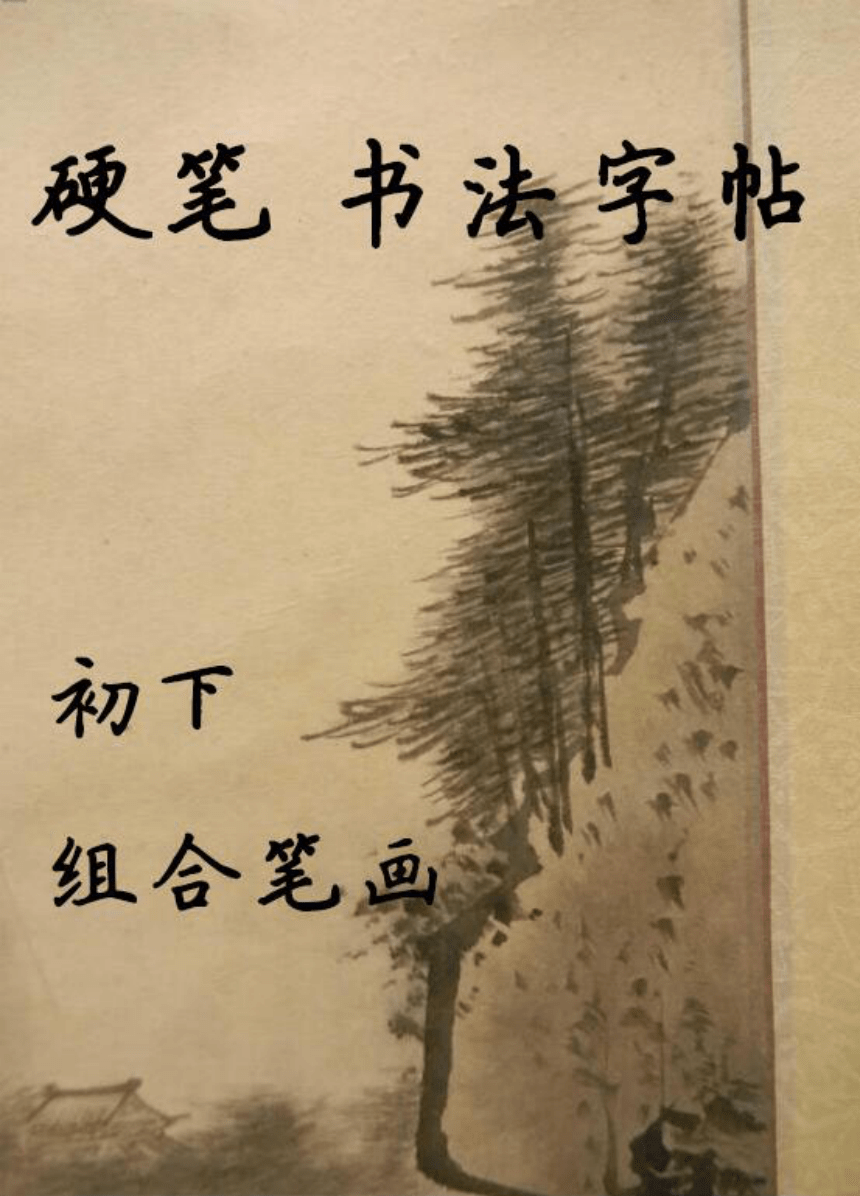 硬笔 书法字帖
初下
组合笔画